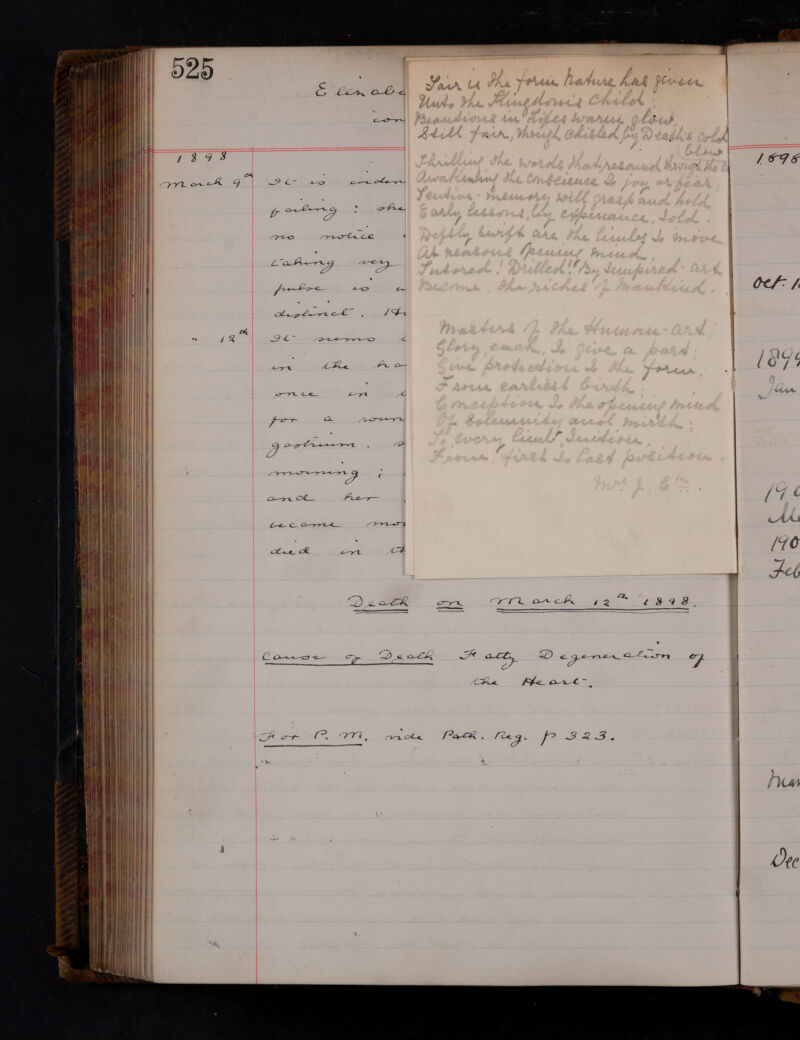 525
Elizabe
con
1898
March 9th It is eviden
failing : she
no notice
taking very
pulse is a
distinct. He
" 12th It seems
in the ha
once in
for a roun
gastrium. S
morning ;
and her
became mor
died in th
Death on March 12th 1898.
Cause of Death Fatty Degeneration of
the Heart.
For P. M. vide Path. Reg. p 323.
Fair is the form Nature has given
Unto the Kingdom's Child;
Beautious in Lifes warm glow,
Still fair, though chisled by Death's cold
blow
Thrilling the words that resound through the
Awakening the Conscience to joy or fear;
memory will grasp and hold
Early lessons, by experiance, told.
Deftly swift are the limbs to move
At reasons opening mind,
Tutored! Drilled! By art
Become, the riches of mankind.
Masters of the Human-art;
Glory, each, to give a part;
Give protection to the form,
From earliest birth;
Conception to the opening mind
Of Solemnity and mirth;
To every limb Tuition,
From, first to last position.
Mrs J. C
1898
Oct. 1
1899
Jan
190
Ma
190
Feb
Mar
Dec